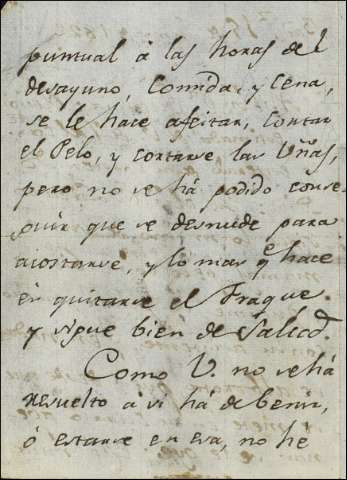 puntual à las horas del
desayuno, Comida y Cena,
se le hace afeitar, Cortar
el Pelo, y cortarse las Uñas,
pero no se há podido conse-
guir que se desnude para
acostarse, y lo mas q.e hace
es quitarse el Fraque.
y sigue bien de Salud.
Como V. no se há
resuelto à si há de benir,
ó estarse en esa, no hé